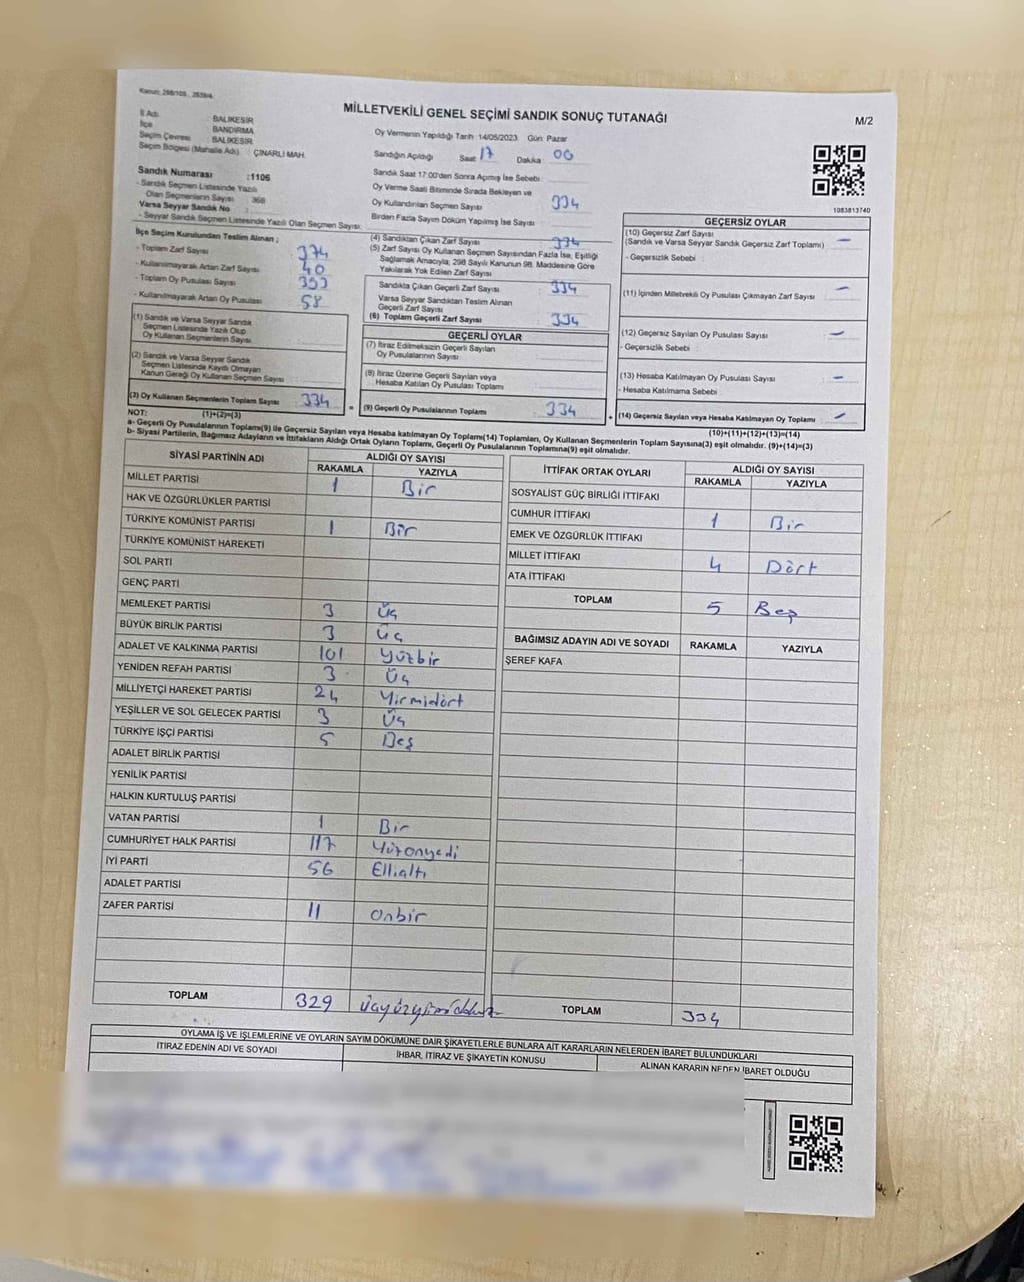 Kanun: 298/105 , 2839/4,
MİLLETVEKİLİ GENEL SEÇİMİ SANDIK SONUÇ TUTANAĞI
M/2
İl Adı : BALIKESİR
İlçe : BANDIRMA
Seçim Çevresi : BALIKESİR
Seçim Bölgesi (Mahalle Adı) : ÇINARLI MAH.
Sandık Numarası :1106
- Sandık Seçmen Listesinde Yazılı
Olan Seçmenlerin Sayısı : 368
Varsa Seyyar Sandık No :
- Seyyar Sandık Seçmen Listesinde Yazılı Olan Seçmen Sayısı:
Oy Vermenin Yapıldığı Tarih: 14/05/2023 Gün: Pazar
Sandığın Açıldığı Saat 17 Dakika : 00
Sandık Saat 17:00'den Sonra Açımış İse Sebebi :
Oy Verme Saati Bitiminde Sırada Bekleyen ve
Oy Kullandırılan Seçmen Sayısı : 334
Birden Fazla Sayım Döküm Yapılmış İse Sayısı :
1083813740
İlçe Seçim Kurulundan Teslim Alınan ;
- Toplam Zarf Sayısı : 374
- Kullanılmayarak Artan Zarf Sayısı : 40
- Toplam Oy Pusulası Sayısı :
- Kullanılmayarak Artan Oy Pusulası : 58
(1) Sandık ve Varsa Seyyar Sandık
Seçmen Listesinde Yazılı Olup
Oy Kullanan Seçmenlerin Sayısı
(2) Sandık ve Varsa Seyyar Sandık
Seçmen Listesinde Kaydı Olmayan
Kanun Gereği Oy Kullanan Seçmen Sayısı :
(3) Oy Kullanan Seçmenlerin Toplam Sayısı : 334
NOT: (1)+(2)=(3)
(4) Sandıktan Çıkan Zarf Sayısı : 334
(5) Zarf Sayısı Oy Kullanan Seçmen Sayısından Fazla İse, Eşitliği
Sağlamak Amacıyla; 298 Sayılı Kanunun 98. Maddesine Göre
Yakılarak Yok Edilen Zarf Sayısı :
Sandıkta Çıkan Geçerli Zarf Sayısı : 334
Varsa Seyyar Sandıktan Teslim Alınan
Geçerli Zarf Sayısı :
(6) Toplam Geçerli Zarf Sayısı : 334
GEÇERLİ OYLAR
(7) İtiraz Edilmeksizin Geçerli Sayılan
Oy Pusulalarının Sayısı :
(8) İtiraz Üzerine Geçerli Sayılan veya
Hesaba Katılan Oy Pusulası Toplamı :
= (9) Geçerli Oy Pusulalarının Toplamı : 334
GEÇERSİZ OYLAR
(10) Geçersiz Zarf Sayısı
(Sandık ve Varsa Seyyar Sandık Geçersiz Zarf Toplamı) : —
- Geçersizlik Sebebi :
(11) İçinden Milletvekili Oy Pusulası Çıkmayan Zarf Sayısı : —
(12) Geçersiz Sayılan Oy Pusulası Sayısı : —
- Geçersizlik Sebebi :
(13) Hesaba Katılmayan Oy Pusulası Sayısı : —
- Hesaba Katılmama Sebebi :
+ (14) Geçersiz Sayılan veya Hesaba Katılmayan Oy Toplamı : —
(10)+(11)+(12)+(13)=(14)
a- Geçerli Oy Pusulalarının Toplamı(9) ile Geçersiz Sayılan veya Hesaba katılmayan Oy Toplamı(14) Toplamları, Oy Kullanan Seçmenlerin Toplam Sayısına(3) eşit olmalıdır. (9)+(14)=(3)
b- Siyasi Partilerin, Bağımsız Adayların ve İttifakların Aldığı Ortak Oyların Toplamı, Geçerli Oy Pusulalarının Toplamına(9) eşit olmalıdır.
SİYASİ PARTİNİN ADI ALDIĞI OY SAYISI
RAKAMLA YAZIYLA
MİLLET PARTİSİ 1 Bir
HAK VE ÖZGÜRLÜKLER PARTİSİ
TÜRKİYE KOMÜNİST PARTİSİ 1 Bir
TÜRKİYE KOMÜNİST HAREKETİ
SOL PARTİ
GENÇ PARTİ
MEMLEKET PARTİSİ 3 Üç
BÜYÜK BİRLİK PARTİSİ 3 Üç
ADALET VE KALKINMA PARTİSİ 101 Yüzbir
YENİDEN REFAH PARTİSİ 3 Üç
MİLLİYETÇİ HAREKET PARTİSİ 24 Yirmidört
YEŞİLLER VE SOL GELECEK PARTİSİ 3 Üç
TÜRKİYE İŞÇİ PARTİSİ 5 Beş
ADALET BİRLİK PARTİSİ
YENİLİK PARTİSİ
HALKIN KURTULUŞ PARTİSİ
VATAN PARTİSİ 1 Bir
CUMHURİYET HALK PARTİSİ 117 Yüzonyedi
İYİ PARTİ 56 Ellialtı
ADALET PARTİSİ
ZAFER PARTİSİ 11 Onbir
TOPLAM 329
İTTİFAK ORTAK OYLARI ALDIĞI OY SAYISI
RAKAMLA YAZIYLA
SOSYALİST GÜÇ BİRLİĞİ İTTİFAKI
CUMHUR İTTİFAKI 1 Bir
EMEK VE ÖZGÜRLÜK İTTİFAKI
MİLLET İTTİFAKI 4 Dört
ATA İTTİFAKI
TOPLAM 5 Beş
BAĞIMSIZ ADAYIN ADI VE SOYADI RAKAMLA YAZIYLA
ŞEREF KAFA
TOPLAM 334
OYLAMA İŞ VE İŞLEMLERİNE VE OYLARIN SAYIM DÖKÜMÜNE DAİR ŞİKAYETLERLE BUNLARA AİT KARARLARIN NELERDEN İBARET BULUNDUKLARI
İTİRAZ EDENİN ADI VE SOYADI İHBAR, İTİRAZ VE ŞİKAYETİN KONUSU ALINAN KARARIN NEDEN İBARET OLDUĞU